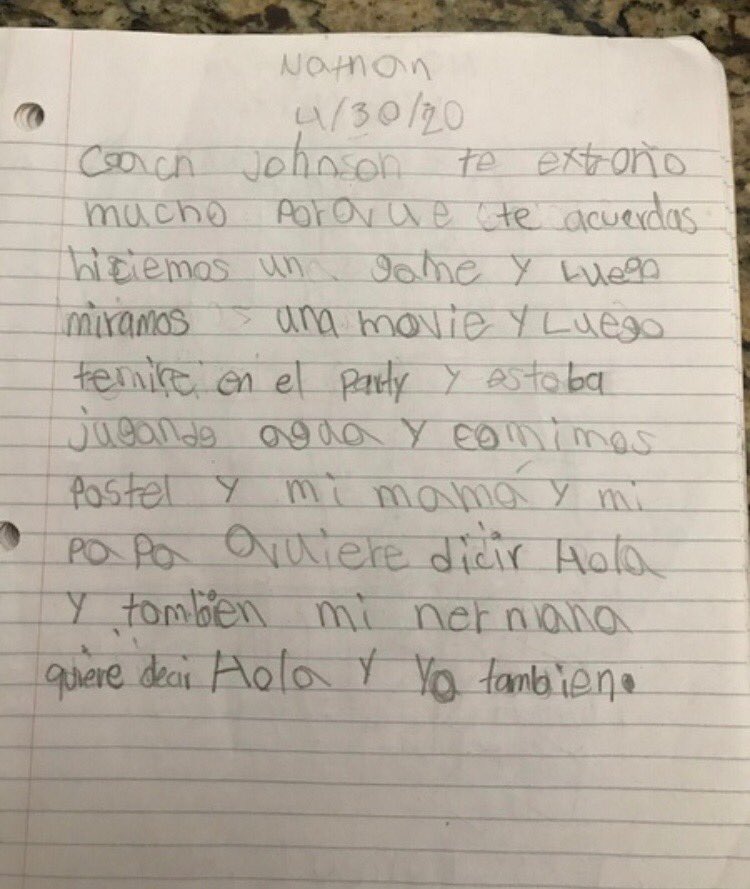 Nathan
4/30/20
Coach Johnson te extraño
mucho porque te acuerdas
hiciemos un game y Luego
miramos una movie y Luego
en el party y estaba
jugando agua y comimos
Pastel y mi mamá y mi
papa quiere dicir Hola
y tombien mi hermana
quiere decir Hola y Yo tambien.